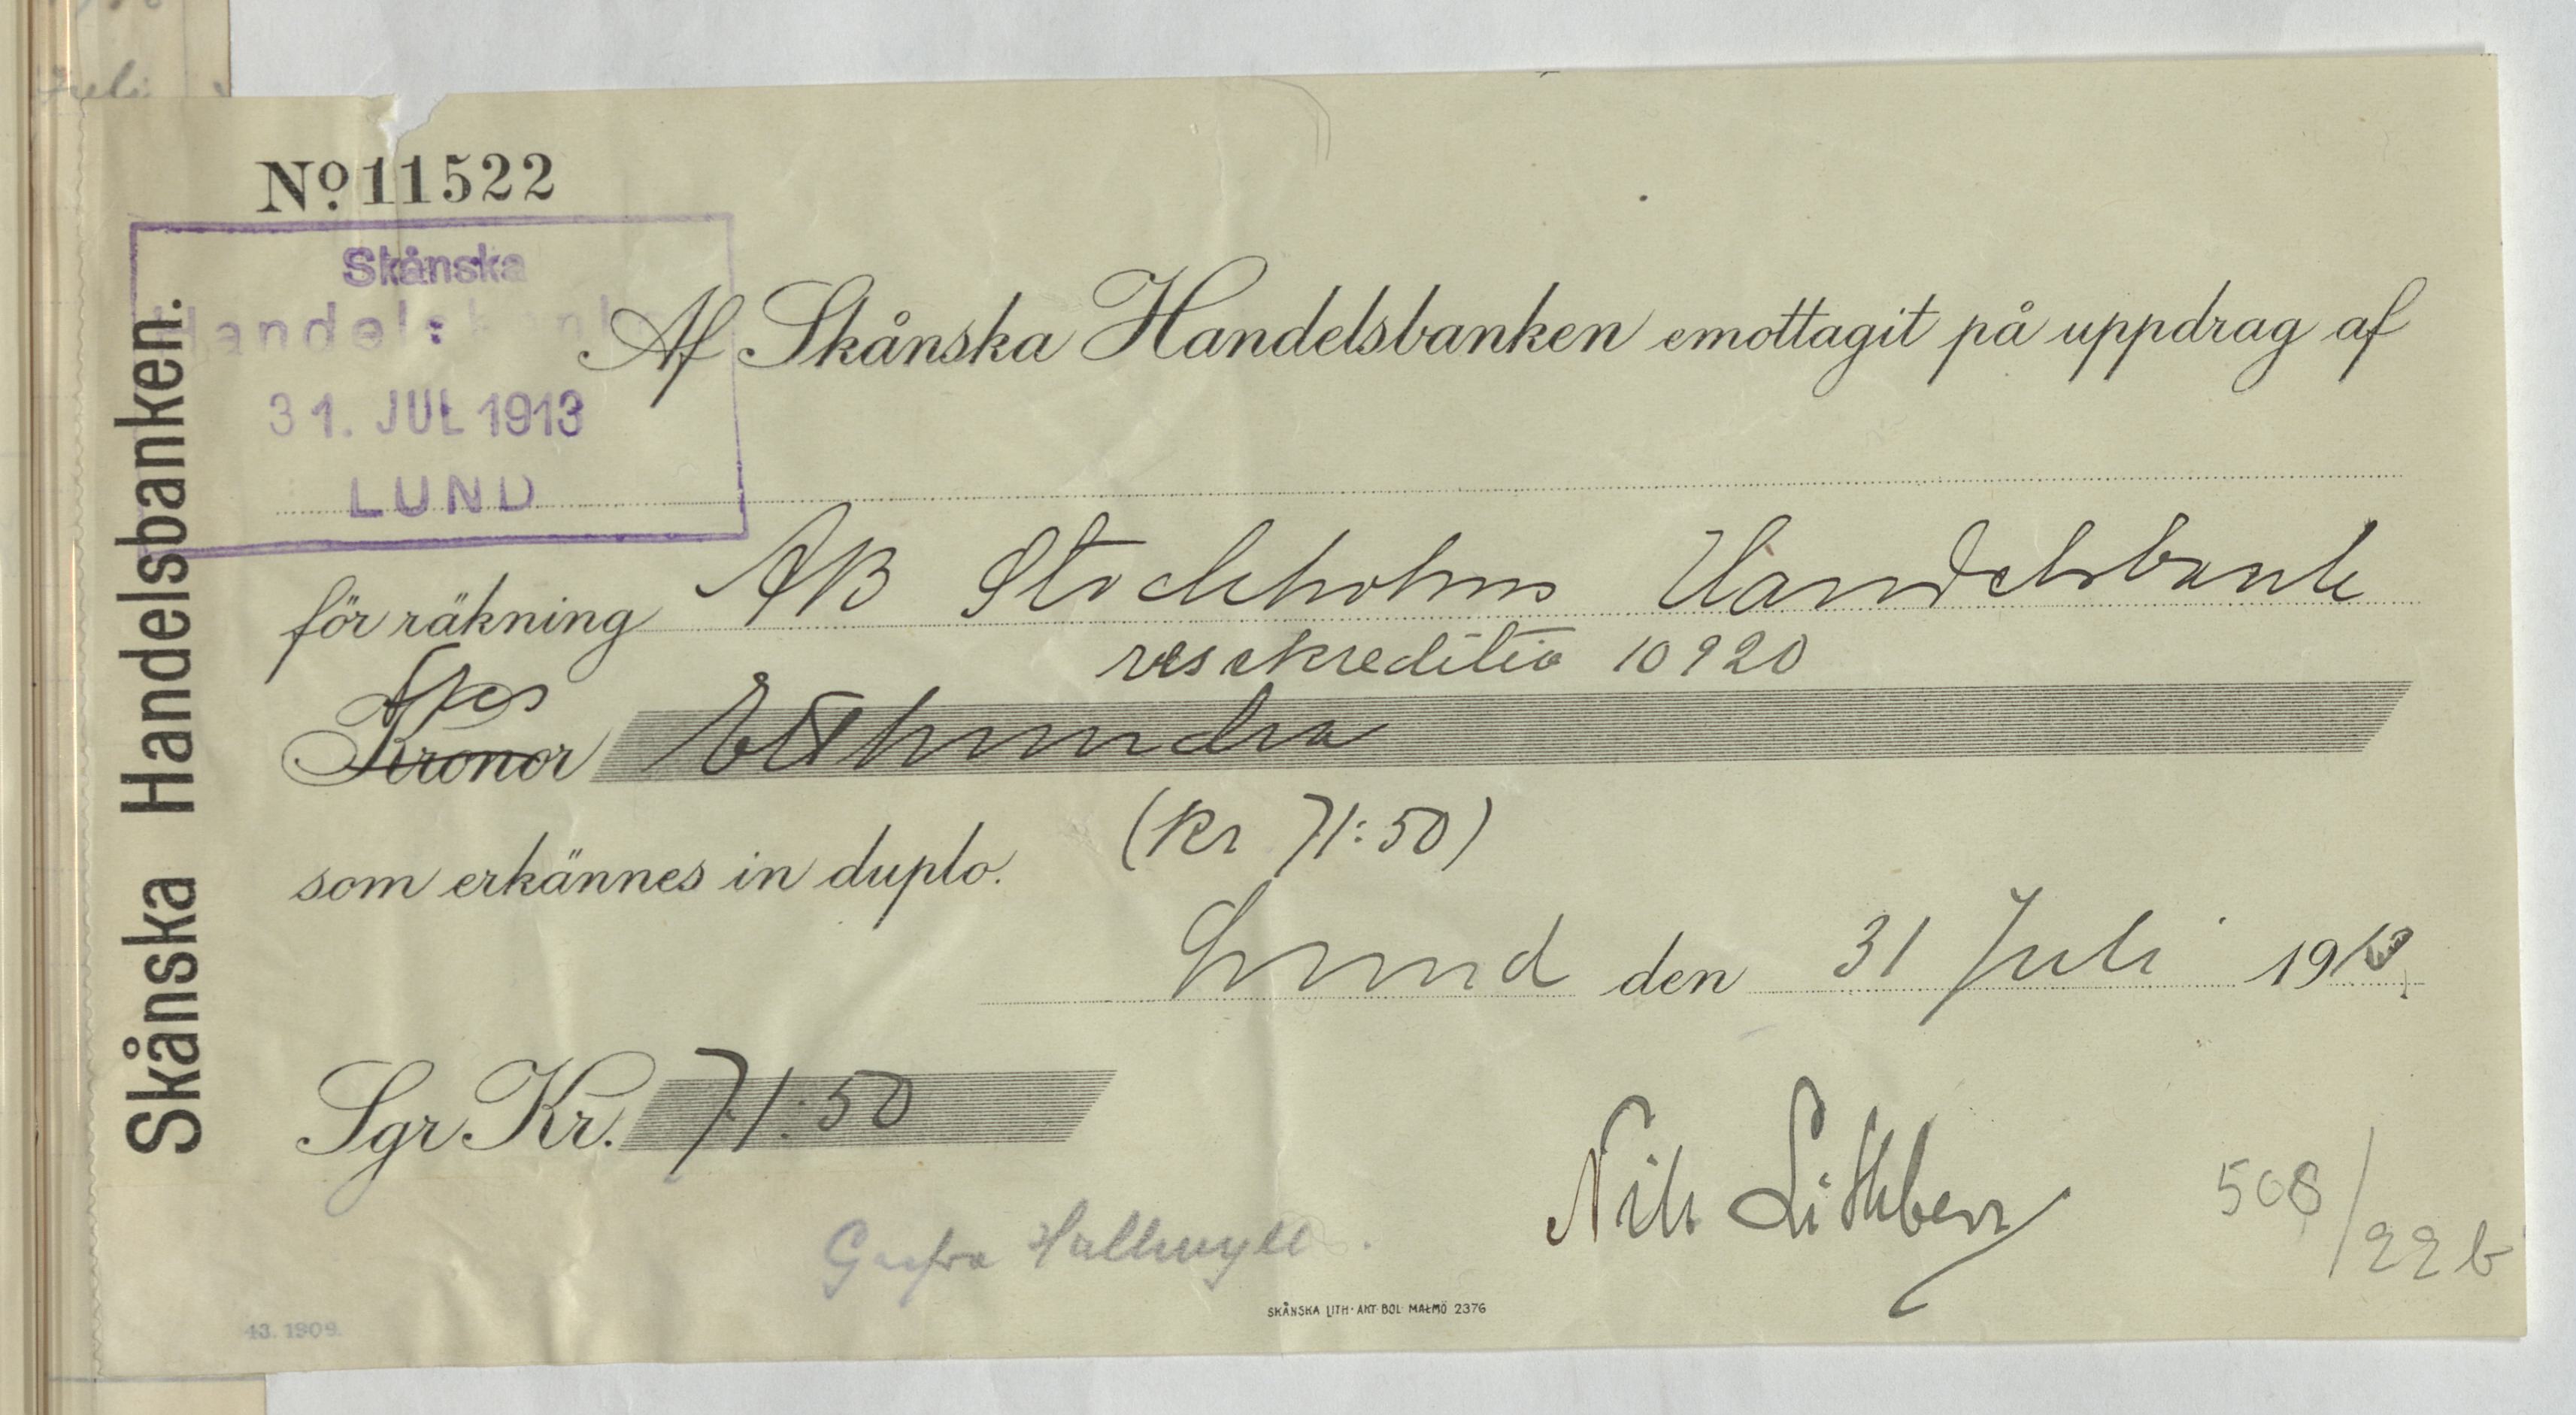 Juli
Skånska Handelsbanken.
No. 11522
Skånska
Handelsbanken
31. JUL 1913
LUND
Af Skånska Handelsbanken emottagit på uppdrag af
för räkning AB Stockholms Handelsbank
resekreditiv 10920
Kronor Etthundra
(Kr 71:50)
som erkännes in duplo.
Lund den 31 Juli 1913
Sgr Kr. 71:50
Nils Lithberg
508/22 b
Grefv Hallwyll
SKÅNSKA LITH. AKT. BOL. MALMÖ 2376
13. 1909.